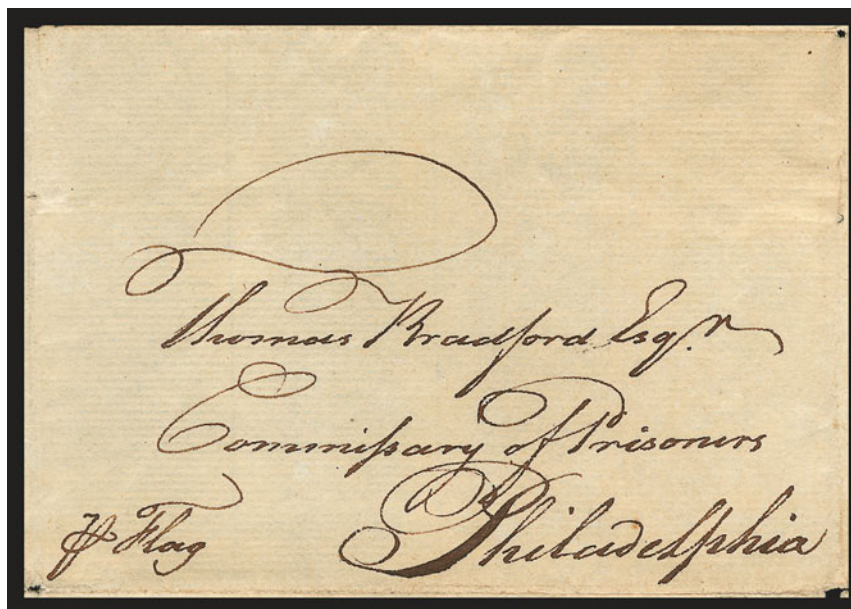 Thomas Bradford Esqr.
Commissary of Prisoners
⅌ Flag Philadelphia